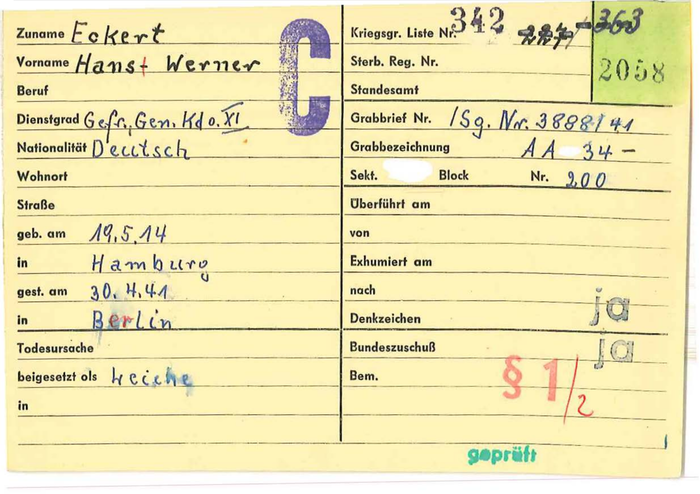 Zuname Eckert
Vorname Hans-Werner
Beruf
Dienstgrad Gefr., Gen. Kdo. XI
Nationalität Deutsch
Wohnort
Straße
geb. am 19.5.14
in Hamburg
gest. am 30.4.41
in Berlin
Todesursache
beigesetzt als Leiche
in
C
Kriegsgr. Liste Nr. 342 363
2058
Sterb. Reg. Nr.
Standesamt
Grabbrief Nr. /Sg. Nr. 3888/41
Grabbezeichnung AA 34-
Sekt. Block Nr. 200
Überführt am
von
Exhumiert am
nach
Denkzeichen ja
Bundeszuschuß ja
Bem. § 1/2
geprüft